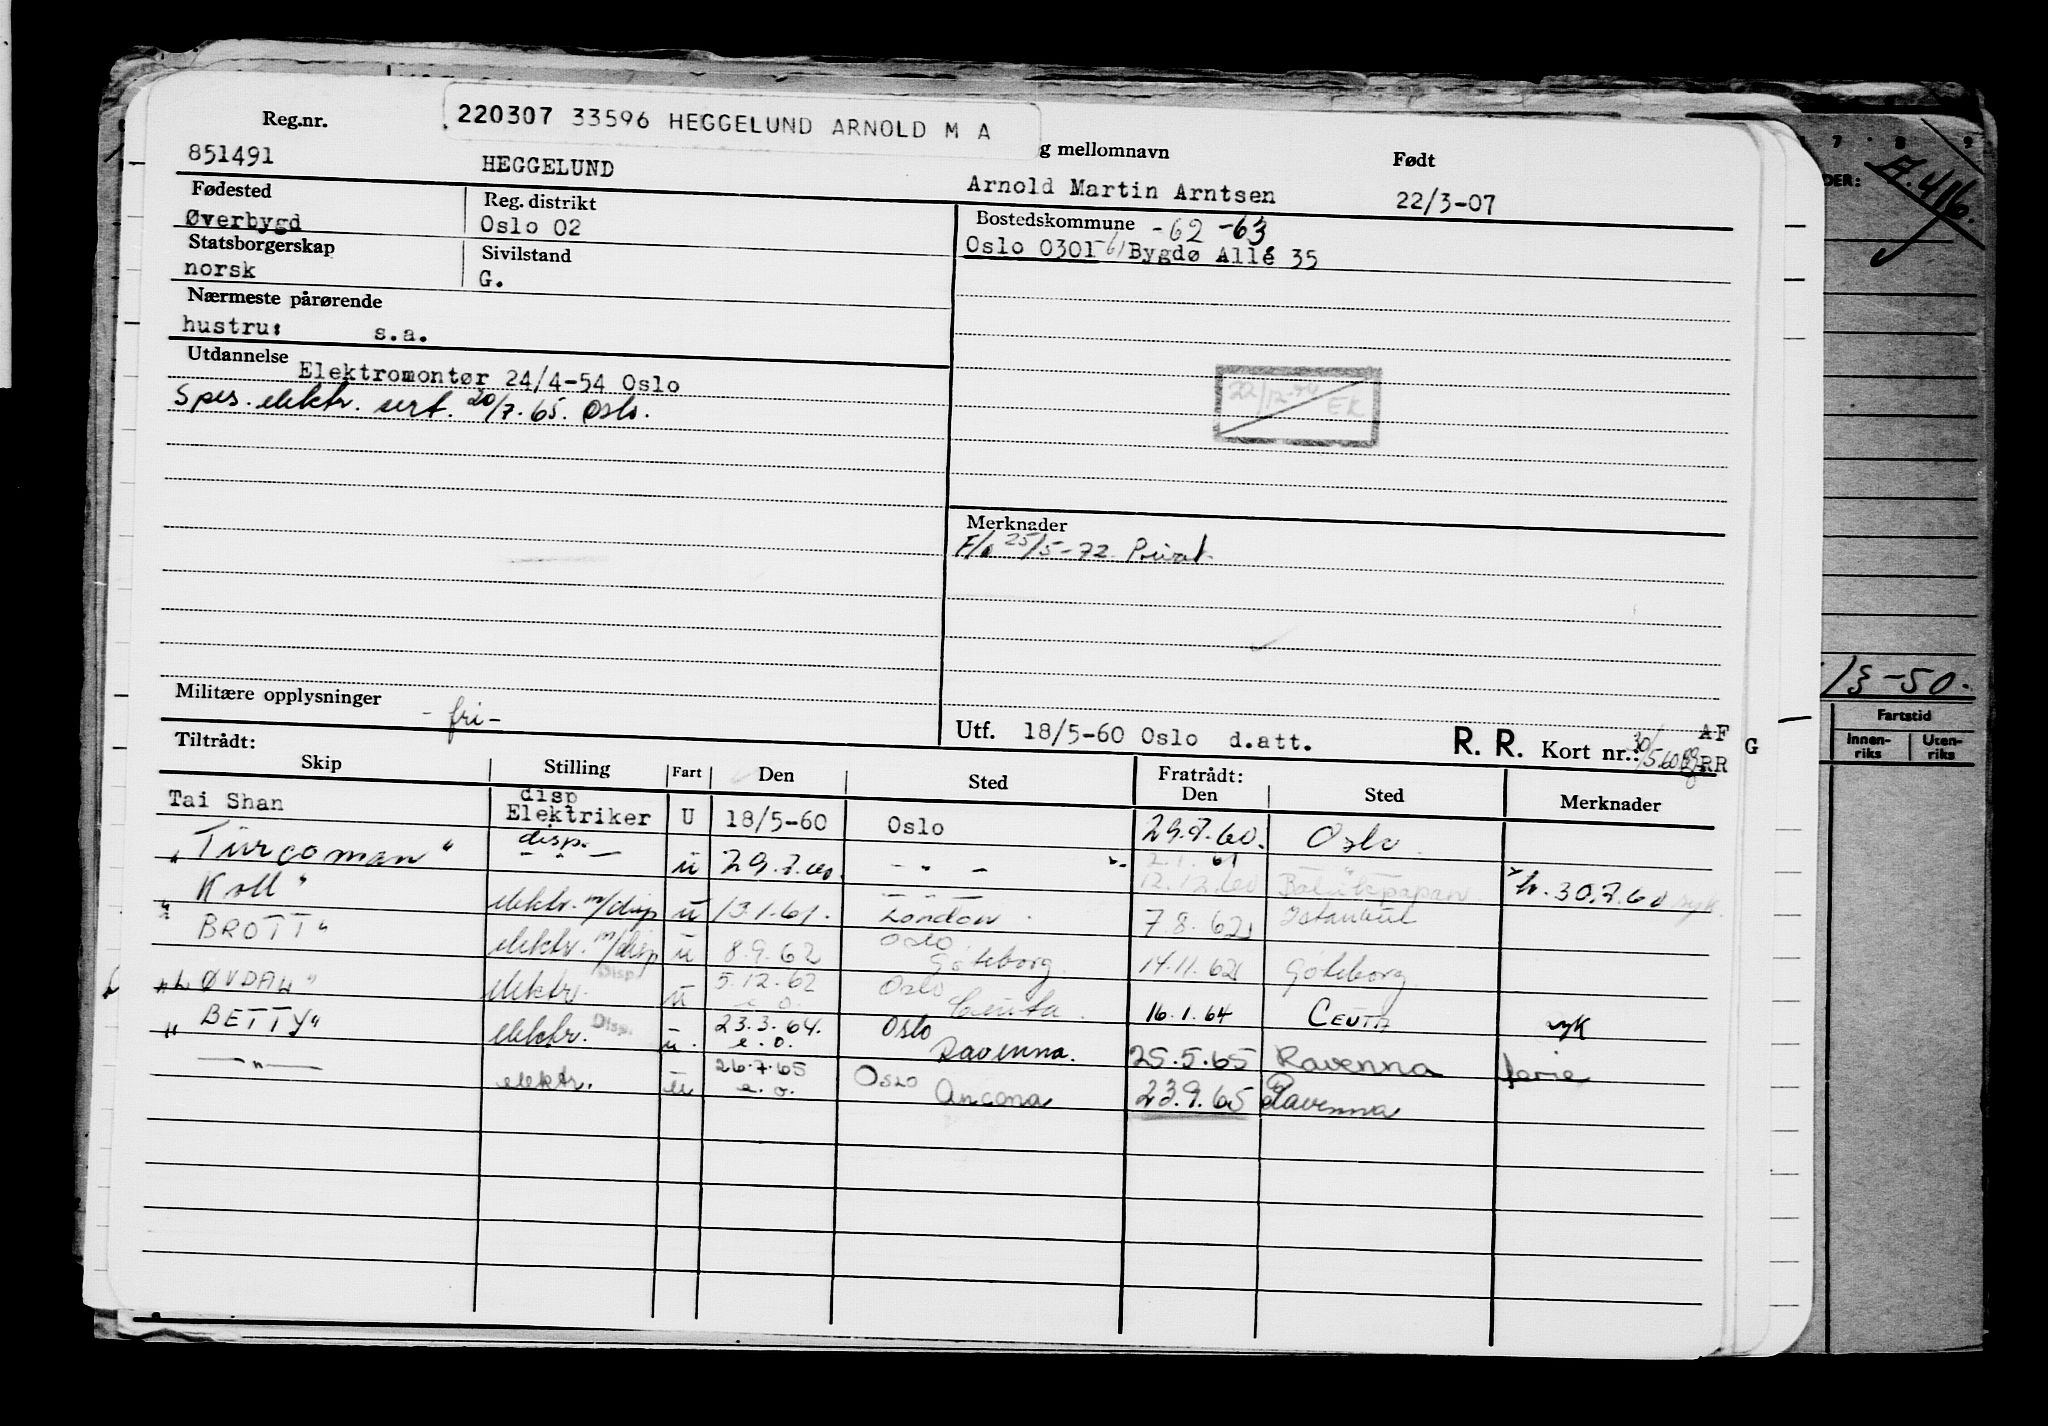 220307 33596 HEGGELUND ARNOLD M A
Reg.nr. g mellomnavn Født
851491 HEGGELUND Arnold Martin Arntsen 22/3-07
Fødested Reg. distrikt Bostedskommune -62 -63
Øverbygd Oslo 02 Oslo 0301 -61 Bygdø Allé 35
Statsborgerskap Sivilstand
norsk G.
Nærmeste pårørende
hustru: s.a.
Utdannelse
Elektromontør 24/4-54 Oslo
Spes. elektr. sert. 20/7.65. Oslo.
22/12-70 EK
Merknader
F/o 25/5-72 Privat.
Militære opplysninger
- fri -
Utf. 18/5-60 Oslo d.att. R. R. Kort nr.: 30/5.60 AF RR G
Tiltrådt: Fratrådt:
Skip Stilling Fart Den Sted Den Sted Merknader
Tai Shan disp Elektriker U 18/5-60 Oslo 29.7.60. Oslo
"Turcoman" disp. - " - u 29.7.60. - " - 2.1.61 12.12.60 30.7.60 syk.
"Koll" elektr. m/disp u 13.1.61. London. 7.8.62 Istanbul
"BROTT" elektr. m/disp u 8.9.62 Oslo Göteborg. 14.11.62 Göteborg.
"ØVDAL" elektr. Disp. u 5.12.62 e.o. Oslo Ceuta. 16.1.64 CEUTA syk
"BETTY" elektr. Disp. u. 23.3.64. e.o. Oslo Ravenna. 25.5.65 Ravenna ferie
— " — elektr. u 26.7.65 e.o. Oslo Ancona 23.9.65 Ravenna
7 8 9
DER: A.416.
/3-50.
Fartstid
Innen-riks Uten-riks